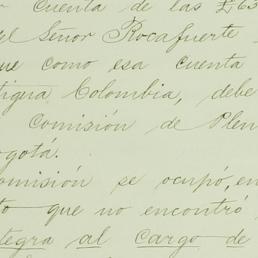 Cuenta de las £63
el Señor Rocafuerte
ue como esa cuenta
tigua Colombia, debe
Comisión de Plen
ogotá.
omisión se ocupó, en
to que no encontró
tegra al cargo de